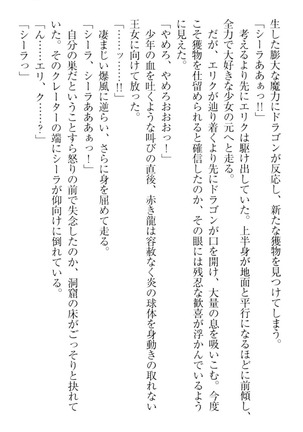 生した膨大な魔力にドラゴンが反応し、新たな獲物を見つけてしまう。
「シーラああぁっ!!」
考えるより先にエリクは駆け出していた。上半身が地面と平行になるほどに前傾し、
全力で大好きな少女の元へと走る。
だが、エリクが辿り着くより先にドラゴンが口を開け、大量の息を吸いこむ。今度
こそ獲物を仕留められると確信したのか、その眼には残忍な歓喜が浮かんでいるよう
に見えた。
「やめろ、やめろおおおっ!」
少年の血を吐くような叫びの直後、赤き龍は容赦なく炎の球体を身動きの取れない
王女に向けて放った。
「……ッ……!!」
凄まじい爆風に逆らい、さらに身を屈めて走る。
「シーラ、シーラあああぁっ!」
自分の巣だということすら怒りの前で失念したのか、洞窟の床がごっそりと抉れて
いた。そのクレーターの端にシーラが仰向けに倒れている。
「ん……エリ、ク……?」
「シーラっ」